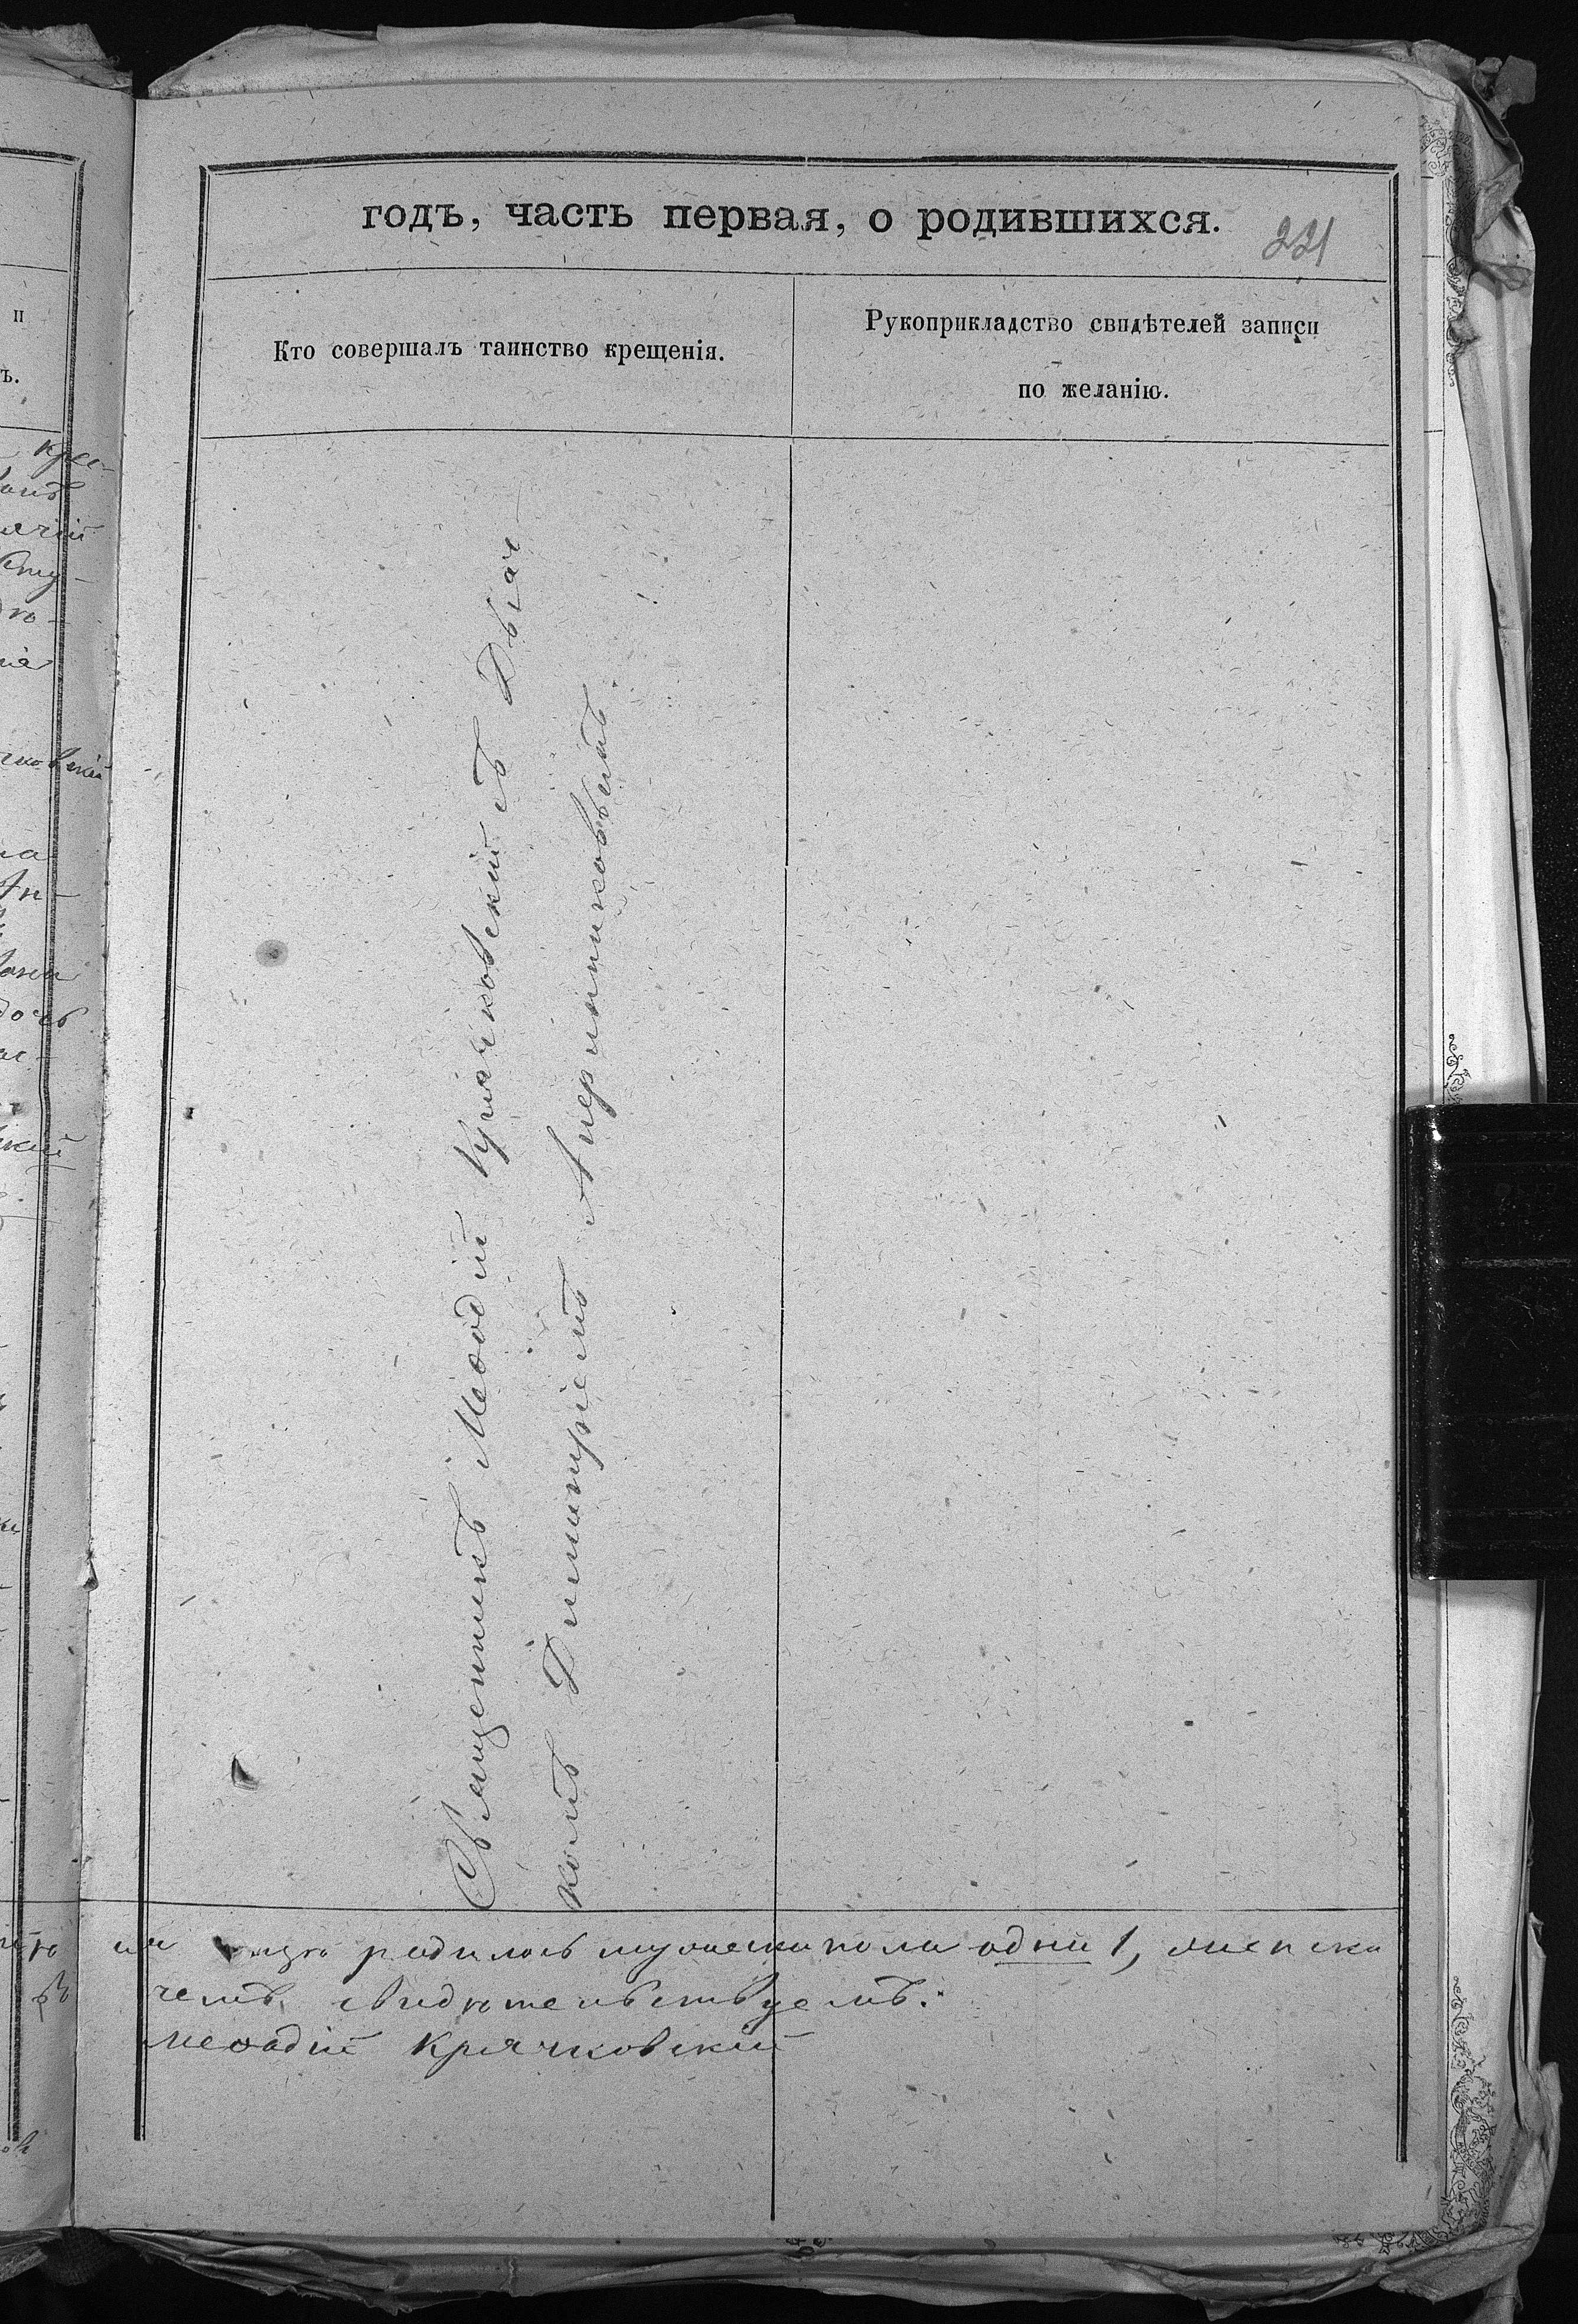 годъ, часть первая, о родившихся.
221
Кто совершалъ таинство крещенія.
Рукоприкладство свидѣтелей записи
по желанію.
Священникъ Меѳодій Крячковскій съ Дьяч-
комъ Димитріемъ Аперинниковымъ.
родилось мужеска пола одни 1, женска
чемъ свидѣтельствуемъ:
Меѳодій Крячковскій